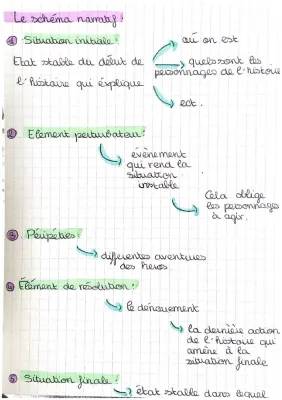 Le schéma narratif :
① Situation initiale :
où on est
Etat stable du début de
l'histoire qui éxplique
quels sont les
personnages de l'histoire
ect.
② Element perturbateur :
évènement
qui rend la
situation
instable
Cela oblige
les personnages
à agir.
③ Péripéties :
differentes aventures
des heros
④ Élément de résolution :
le dénouement
la dernière action
de l'histoire qui
amène à la
situation finale
⑤ Situation finale :
état stable dans lequel